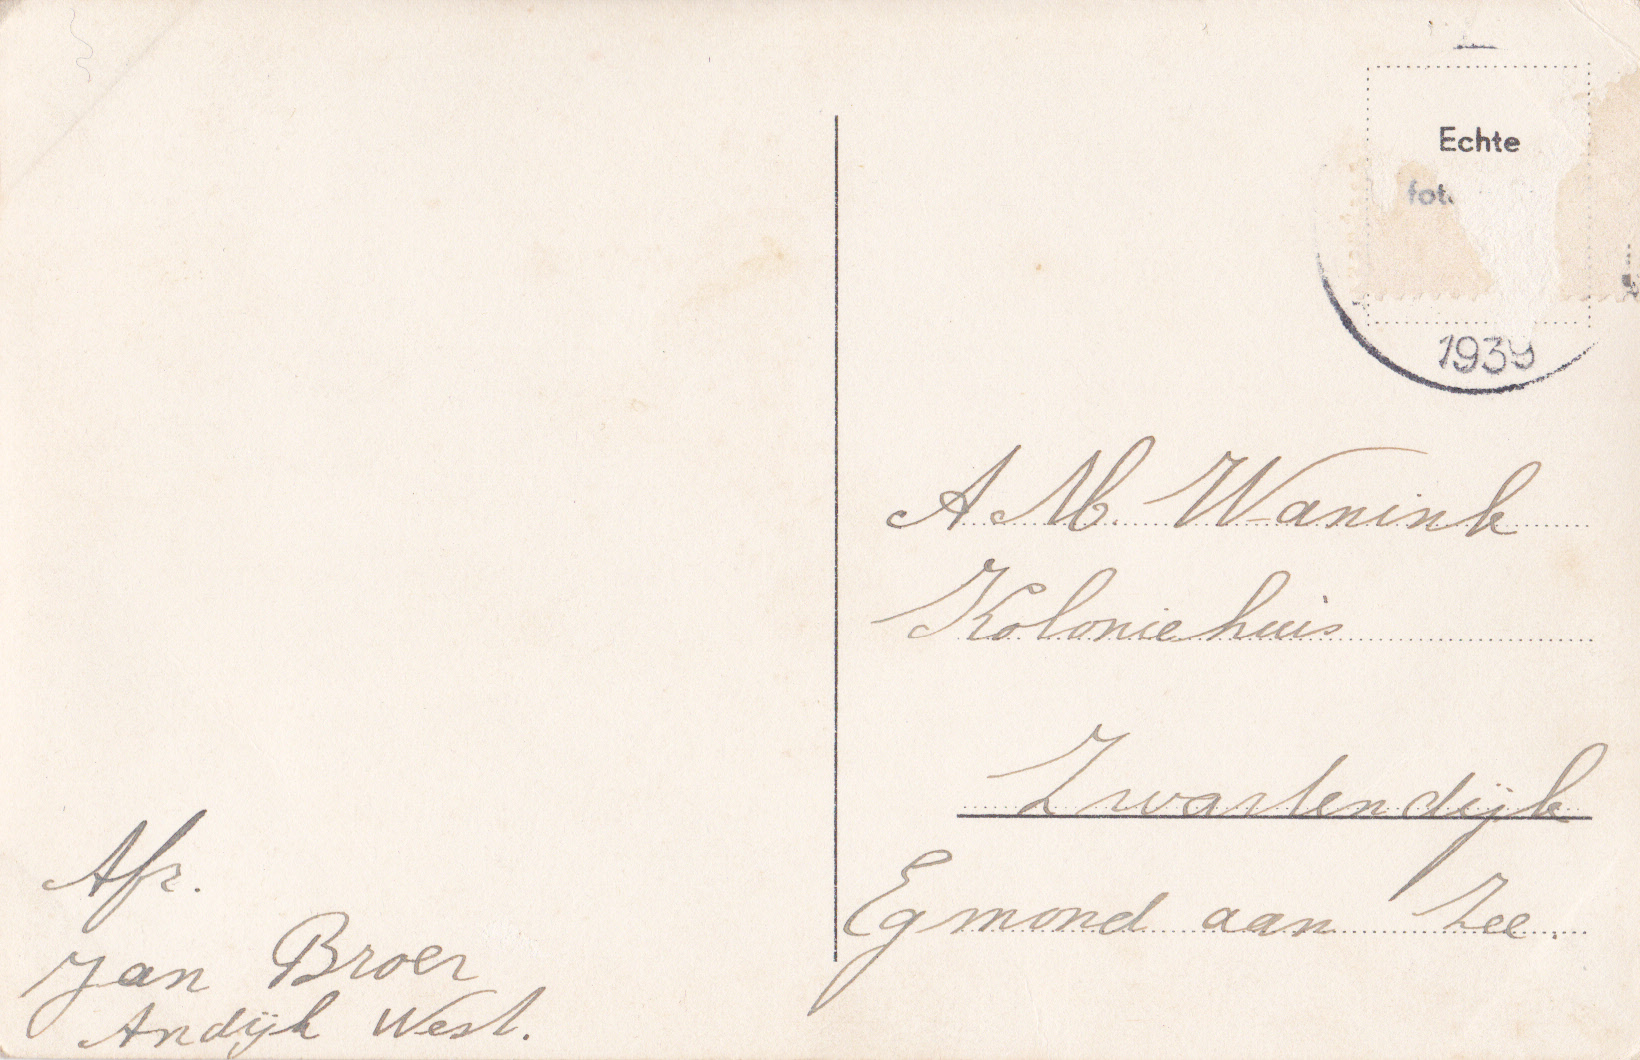 Echte
1939
A M. Wanink
Koloniehuis
Zwartendijk
Egmond aan Zee.
Afz.
Jan Broer
Andijk West.